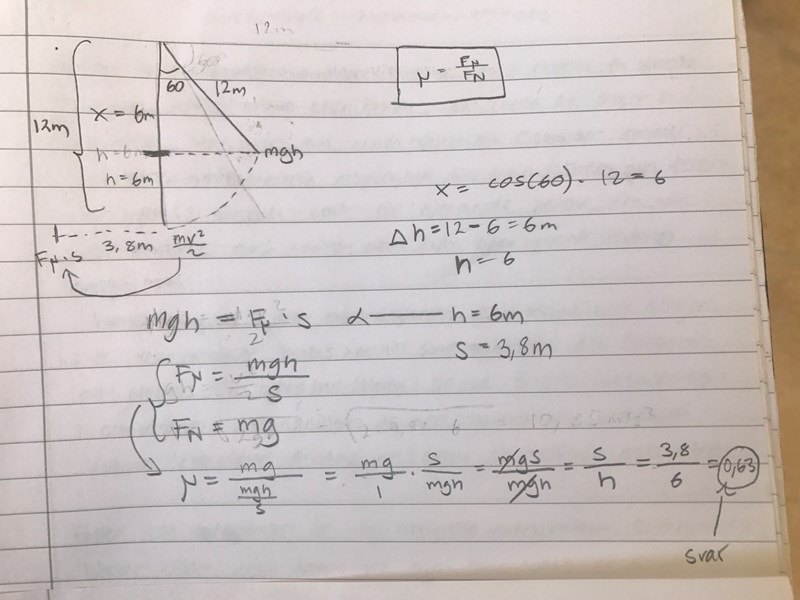 12m
60°
60
12m
μ = Fμ/FN
x = 6m
12m
h = 6m
mgh
h = 6m
x = cos(60) · 12 = 6
Δh = 12 - 6 = 6m
h = 6
3,8m
mv²/2
Fμ·s
mgh = Fμ · s
h = 6m
s = 3,8m
Fμ = mgh/s
FN = mg
μ = mg/(mgh/s) = mg/1 · s/mgh = mgs/mgh = s/h = 3,8/6 = 0,63
svar